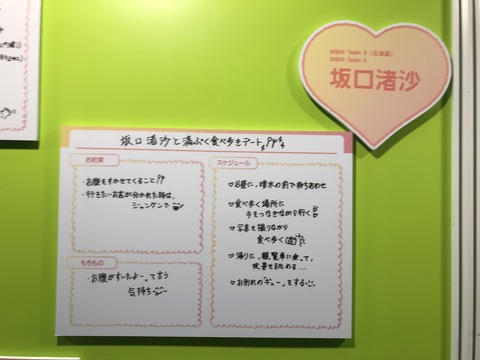 AKB48 Team 8(北海道)
AKB48 Team 4
坂口渚沙
坂口渚沙と満ぷく食べ歩きデート
お約束
・お腹をすかせてくること!!
・行きたいお店が分かれた時は、
ジャンケンで
もちもの
・お腹がすいたよー。って言う
気持ち
スケジュール
♡お昼に、噴水の前で待ちあわせ
♡食べ歩く場所に
手をつなぎながら行く
♡写真を撮りながら
食べ歩く
♡帰りに、観覧車に乗って、
夜景を眺める...
♡お別れのギューってする